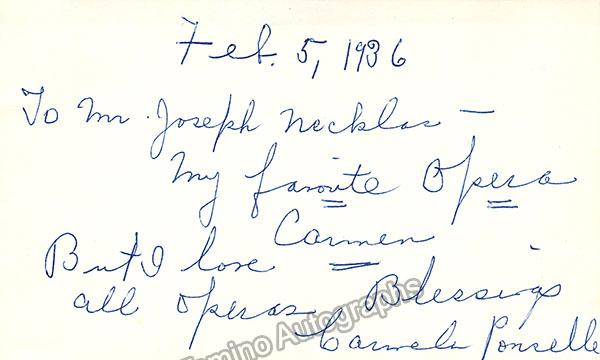 Feb. 5, 1936
To Mr. Joseph Necklas —
My favoite Opera
Carmen
But I love
all operas Blessings
Carmela Ponselle
Tamino Autographs